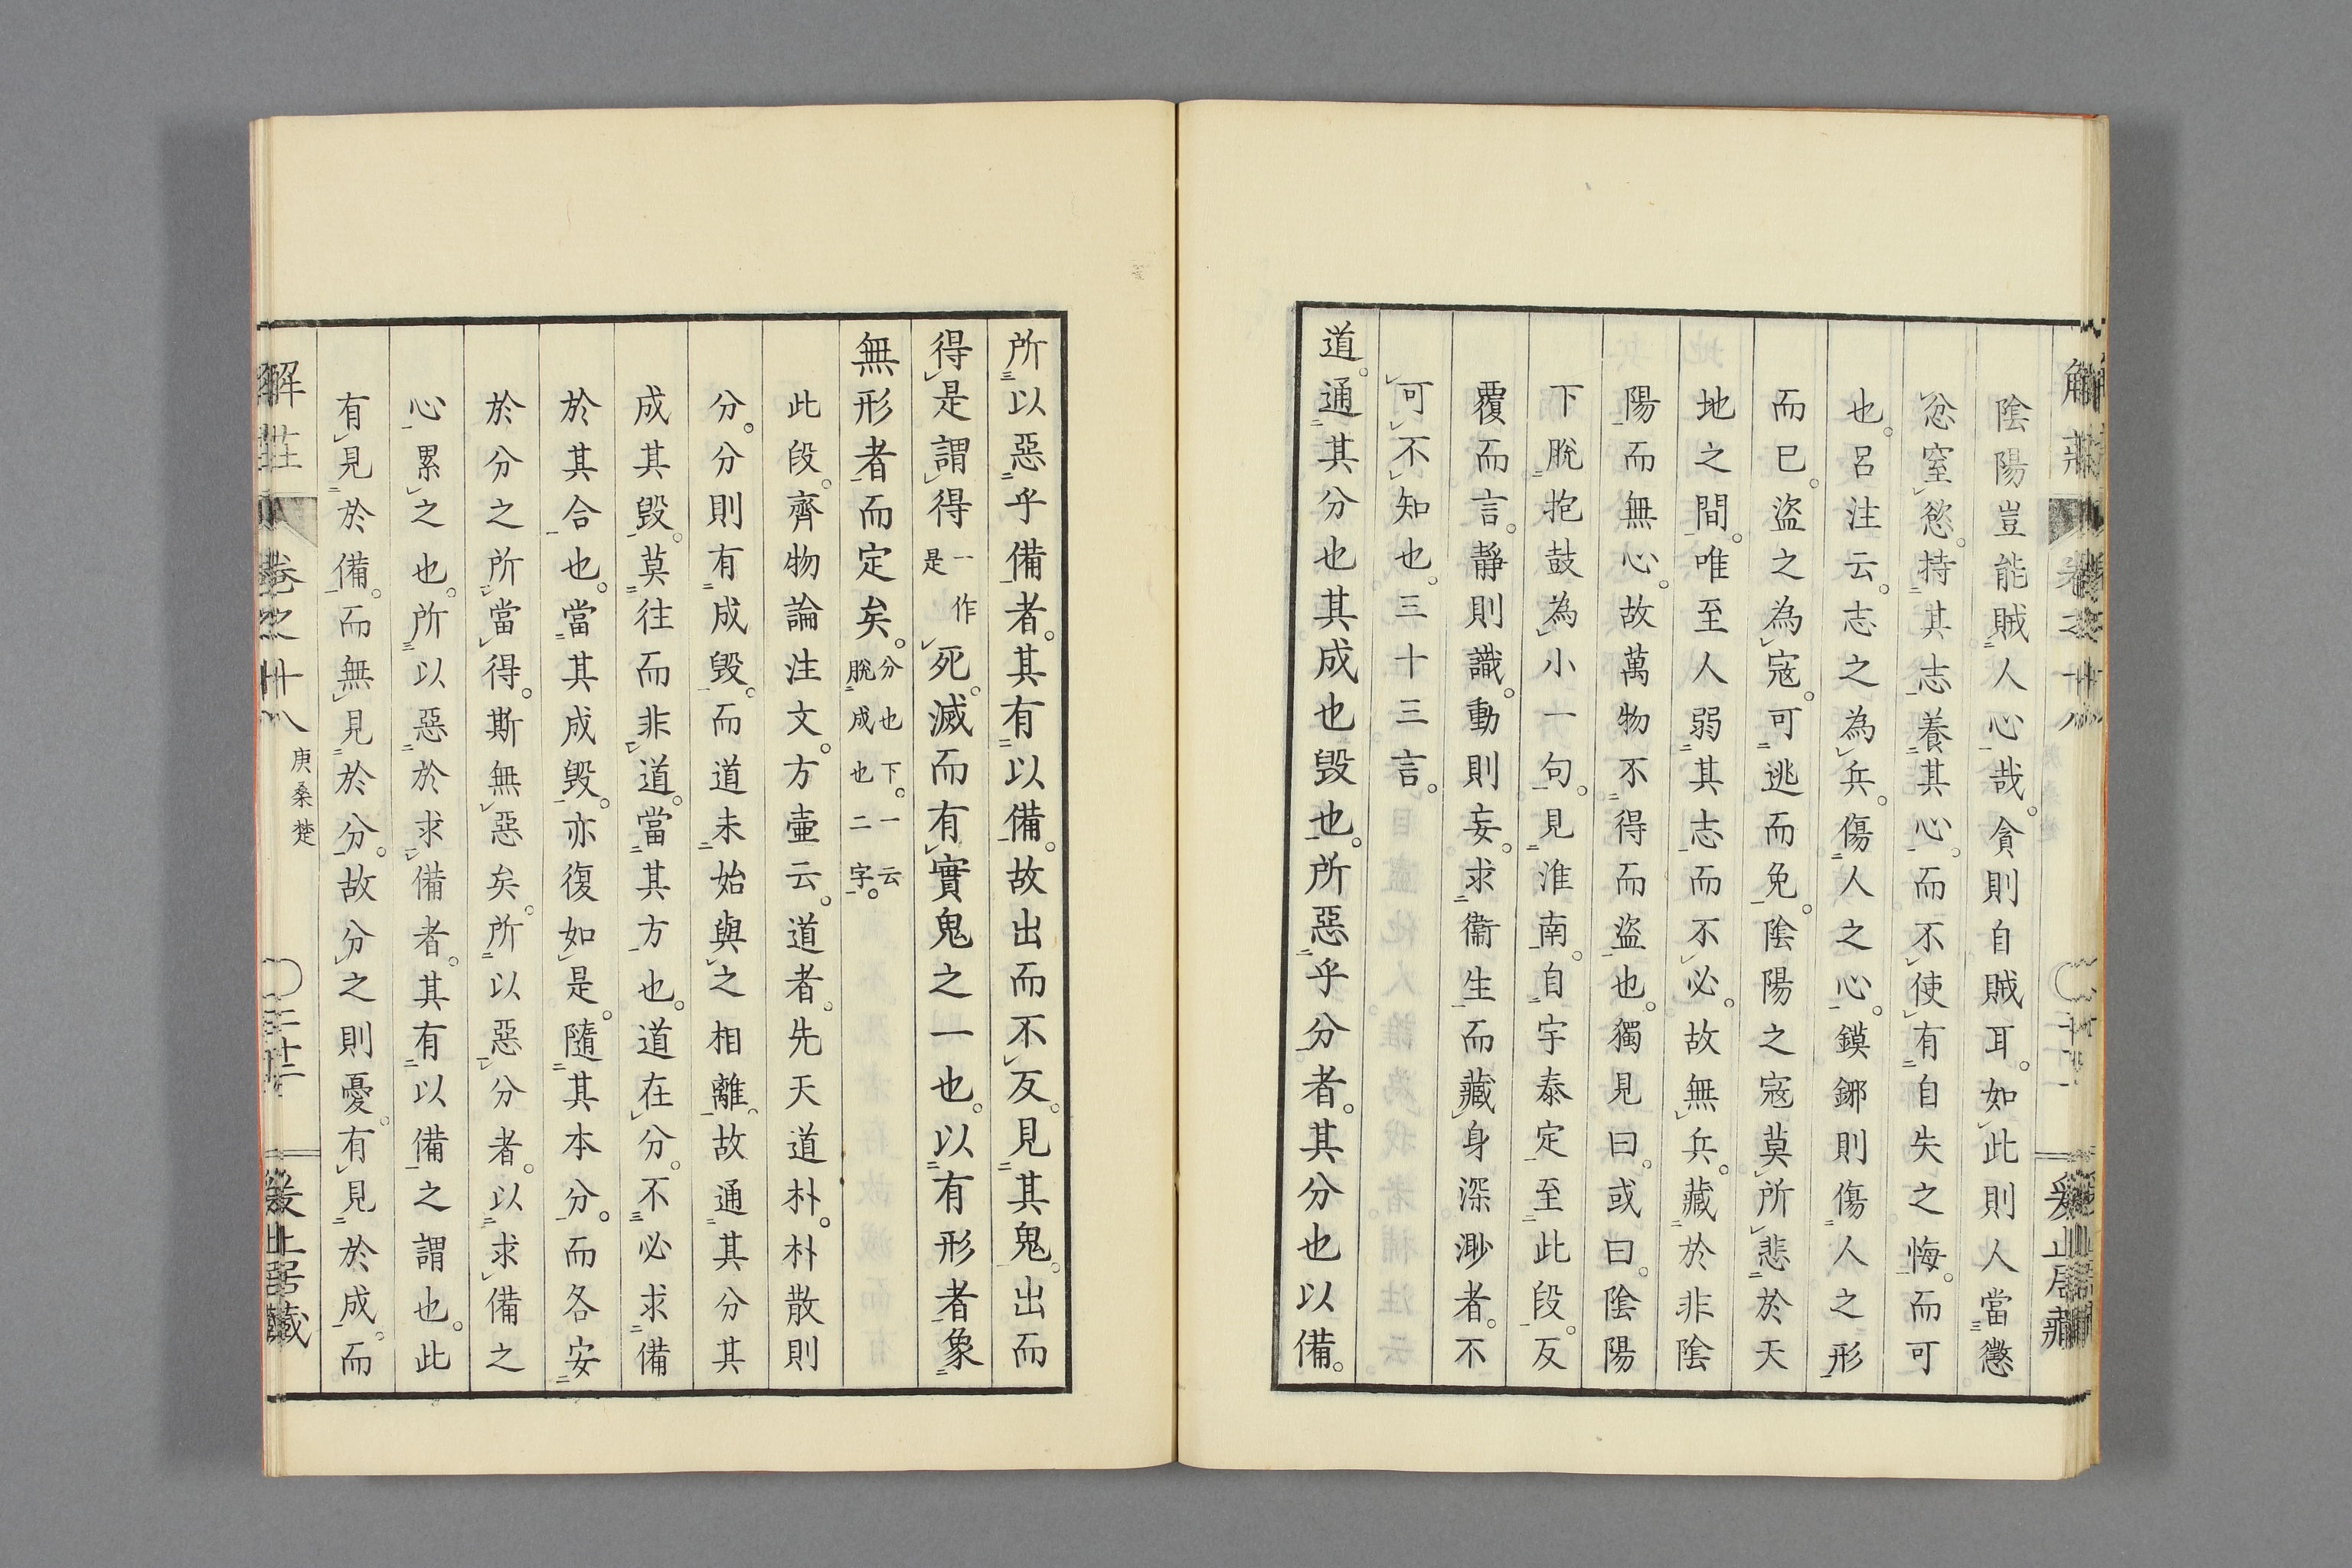 陰陽豈能賊人心哉。貪則自賊耳。如此則人當懲
忿窒慾。持其志養其心。而不使有自失之悔。而可
也。呂注云。志之為兵。傷人之心。鏌鋣則傷人之形
而已。盜之為寇。可逃而免。陰陽之寇莫所悲於天
地之間。唯至人弱其志而不必。故無兵。藏於非陰
陽而無心。故萬物不得而盜也。獨見曰。或曰。陰陽
下脫抱鼓為小一句。見淮南。自宇泰定至此段。反
覆而言。靜則識。動則妄。求衞生而藏身深渺者。不
可不知也。三十三言。
道。通其分也其成也毀也。所惡乎分者。其分也以備。
所以惡乎備者。其有以備。故出而不反。見其鬼。出而
得是謂得一作是死。滅而有實鬼之一也。以有形者象
無形者而定矣。分也下。一云脫成也二字。
此段。齊物論注文。方壷云。道者。先天道朴。朴散則
分。分則有成毀。而道未始與之相離。故通其分其
成其毀。莫往而非道。當其方也。道在分。不必求備
於其合也。當其成毀。亦復如是。隨其本分。而各安
於分之所當得。斯無惡矣。所以惡分者。以求備之
心累之也。所以惡於求備者。其有以備之謂也。此
有見於備。而無見於分。故分之則憂。有見於成。而
解莊
卷之十八
庚桑楚